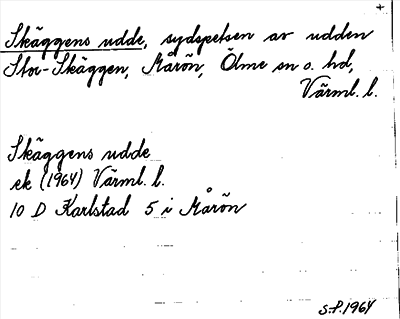 Skäggens udde, sydspetsen av udden
Stor-Skäggen, Mårön, Ölme sn o. hd,
Värml. l.
Skäggens udde
ek (1964) Värml. l.
10 D Karlstad 5 i Mårön
S.P. 1964